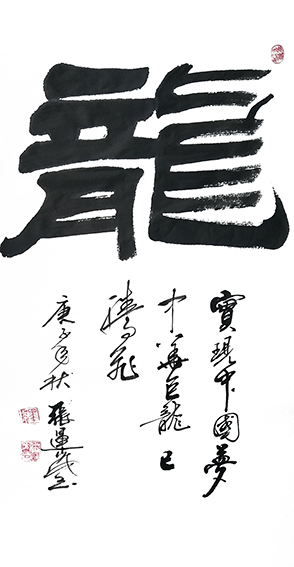 龍
實現中國夢
中華巨龍已
騰飛
庚子年秋
張運